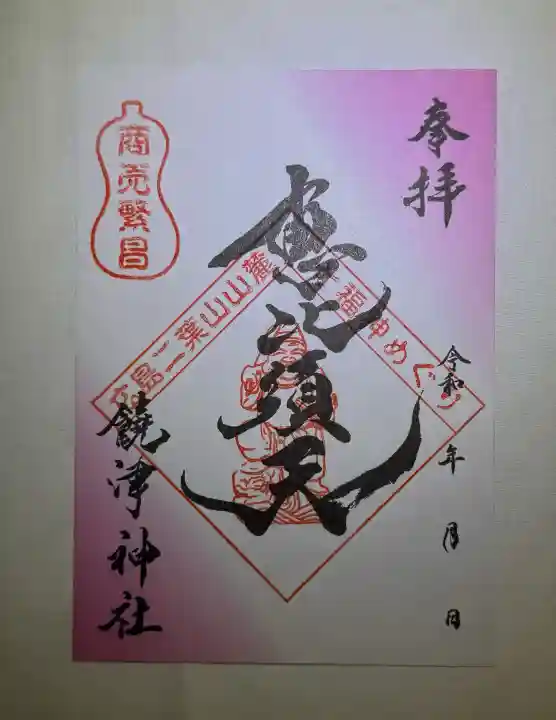 奉拝
令和 年 月 日
恵比須天
福神めぐり
広島二葉山山麓
商売繁昌
饒津神社